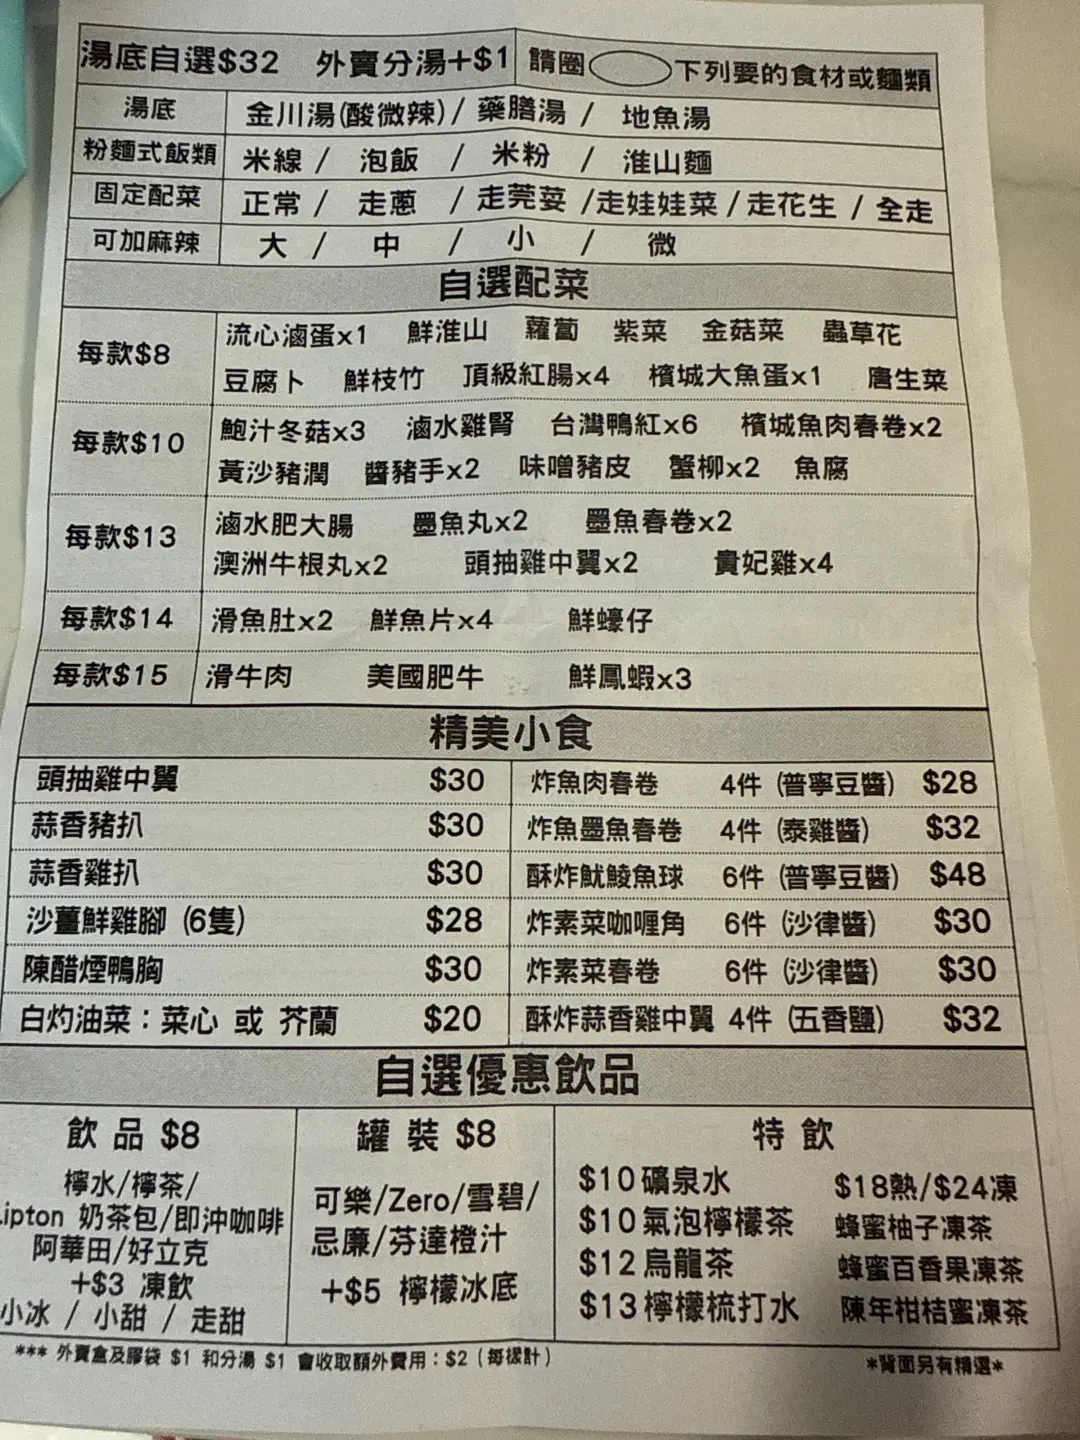 湯底自選$32 外賣分湯+$1 請圈 下列要的食材或麵類
湯底 金川湯(酸微辣) / 藥膳湯 / 地魚湯
粉麵式飯類 米線 / 泡飯 / 米粉 / 淮山麵
固定配菜 正常 / 走蔥 / 走莞荽 / 走娃娃菜 / 走花生 / 全走
可加麻辣 大 / 中 / 小 / 微
自選配菜
每款$8 流心滷蛋x1 鮮淮山 蘿蔔 紫菜 金菇菜 蟲草花
豆腐卜 鮮枝竹 頂級紅腸x4 檳城大魚蛋x1 唐生菜
每款$10 鮑汁冬菇x3 滷水雞腎 台灣鴨紅x6 檳城魚肉春卷x2
黃沙豬潤 醬豬手x2 味噌豬皮 蟹柳x2 魚腐
每款$13 滷水肥大腸 墨魚丸x2 墨魚春卷x2
澳洲牛根丸x2 頭抽雞中翼x2 貴妃雞x4
每款$14 滑魚肚x2 鮮魚片x4 鮮蠔仔
每款$15 滑牛肉 美國肥牛 鮮鳳蝦x3
精美小食
頭抽雞中翼 $30 炸魚肉春卷 4件 (普寧豆醬) $28
蒜香豬扒 $30 炸魚墨魚春卷 4件 (泰雞醬) $32
蒜香雞扒 $30 酥炸魷鯪魚球 6件 (普寧豆醬) $48
沙薑鮮雞腳 (6隻) $28 炸素菜咖喱角 6件 (沙律醬) $30
陳醋煙鴨胸 $30 炸素菜春卷 6件 (沙律醬) $30
白灼油菜：菜心 或 芥蘭 $20 酥炸蒜香雞中翼 4件 (五香鹽) $32
自選優惠飲品
飲 品 $8
檸水/檸茶/
ipton 奶茶包/即沖咖啡
阿華田/好立克
+$3 凍飲
小冰 / 小甜 / 走甜
罐 裝 $8
可樂/Zero/雪碧/
忌廉/芬達橙汁
+$5 檸檬冰底
特 飲
$10礦泉水 $18熱/$24凍
$10氣泡檸檬茶 蜂蜜柚子凍茶
$12烏龍茶 蜂蜜百香果凍茶
$13檸檬梳打水 陳年柑桔蜜凍茶
*** 外賣盒及膠袋 $1 和分湯 $1 會收取額外費用：$2 (每樣計)
*背面另有精選*